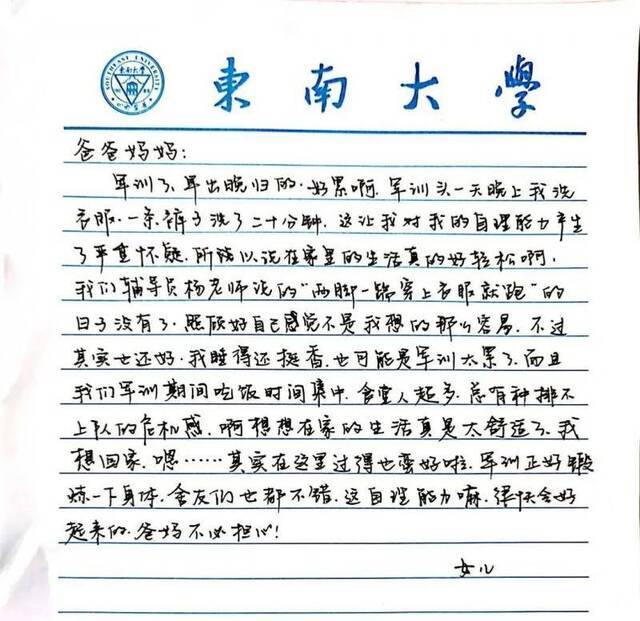 SOUTHEAST UNIVERSITY
東南大學
東南大學
爸爸妈妈:
军训了、早出晚归的.好累啊.军训头一天晚上我洗
衣服.一条裤子洗了二十分钟.这让我对我的自理能力产生
了严重怀疑.所以说在家里的生活真的好轻松啊.
我们辅导员杨老师说的"两脚一蹬穿上衣服就跑"的
日子没有了.照顾好自己感觉不是我想的那么容易.不过
其实也还好.我睡得还挺香.也可能是军训太累了.而且
我们军训期间吃饭时间集中.食堂人超多.总有种排不
上队的危机感.啊想想在家的生活真是太舒适了.我
想回家.嗯……其实在这里过得也蛮好啦.军训正好锻
炼一下身体.舍友们也都不错.这自理能力嘛.很快会好
起来的.爸妈不必担心!
女儿